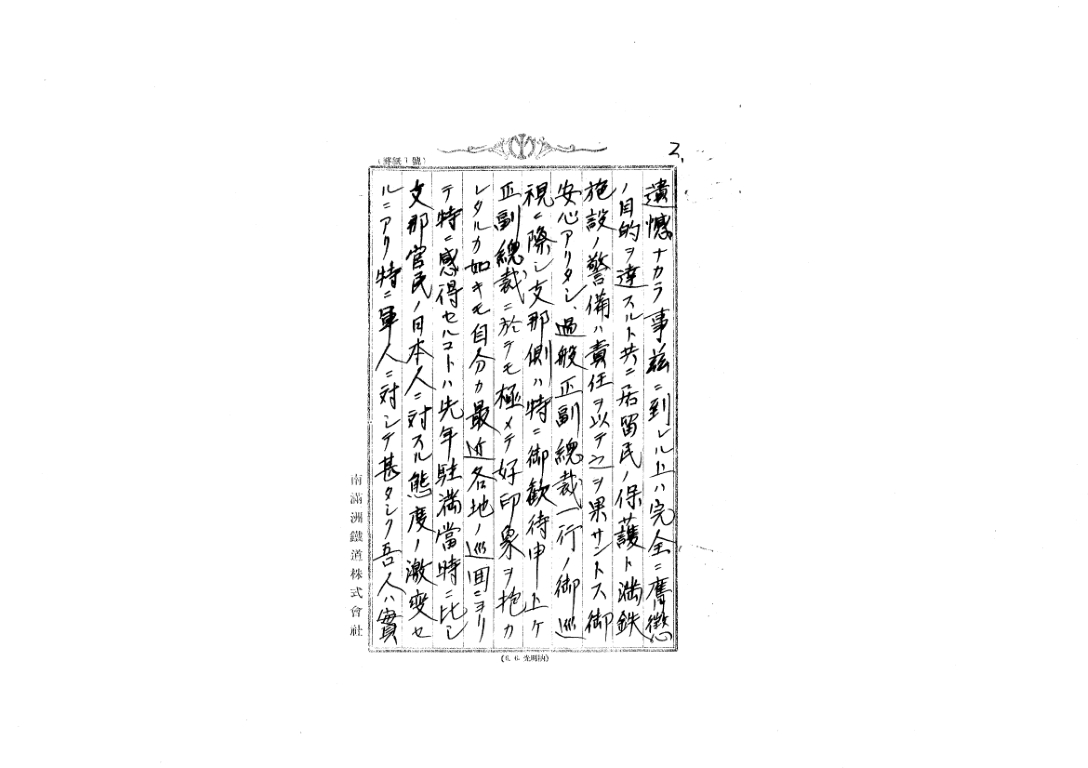 2.
(號1紙薄)
遺憾ナカラ事茲ニ到レル上ハ完全ニ膺懲
ノ目的ヲ達スルト共ニ居留民ノ保護ト満鉄
施設ノ警備ハ責任ヲ以テ之ヲ果サントス御
安心アリタシ、過般正副總裁一行ノ御巡
視ニ際シ支那側ハ特ニ御歓待申上ケ
正副總裁ニ於テモ極メテ好印象ヲ抱カ
レタルカ如キモ自分カ最近各地ノ巡囬ニヨリ
テ特ニ感得セルコトハ先年駐満當時ニ比シ
支那官民ノ日本人ニ対スル態度ノ激変セ
ルニアリ特ニ軍人ニ対シテ甚タシク吾人ハ實
南滿洲鐵道株式會社